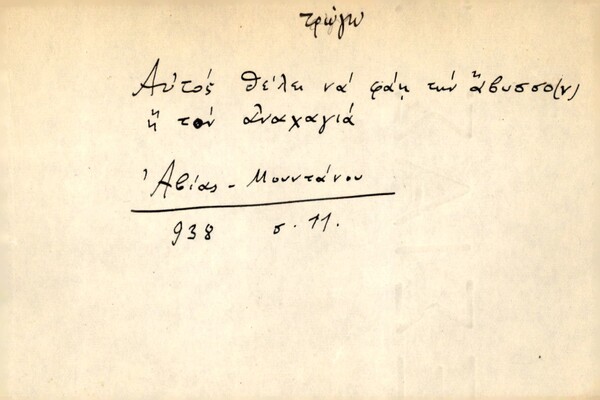 τρώγω
Αὐτός θέλει νά φάῃ τήν ἄβυσσο(ν)
ἤ τόν ἀναχαγιά
Ἀβίας - Μουντάνου
938 σ. 11.